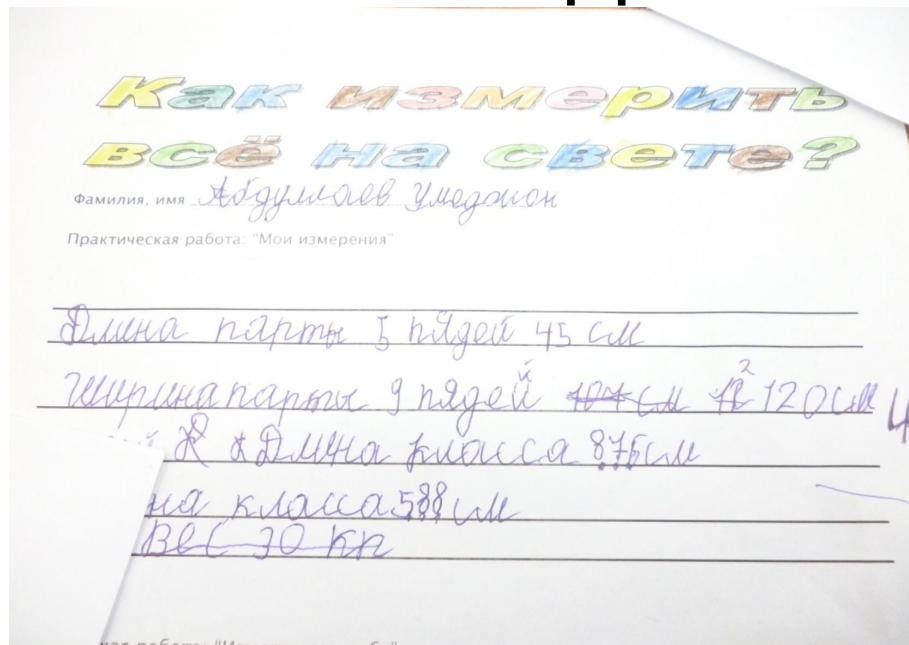 Как измерить
всё на свете?
Фамилия, имя Абдуллаев Умеджон
Практическая работа: "Мои измерения"
Длина парты 5 пядей 45 см
Ширина парты 9 пядей 107 см 120 см
Длина класса 875 см
на класса 588 см
Вес 30 кг